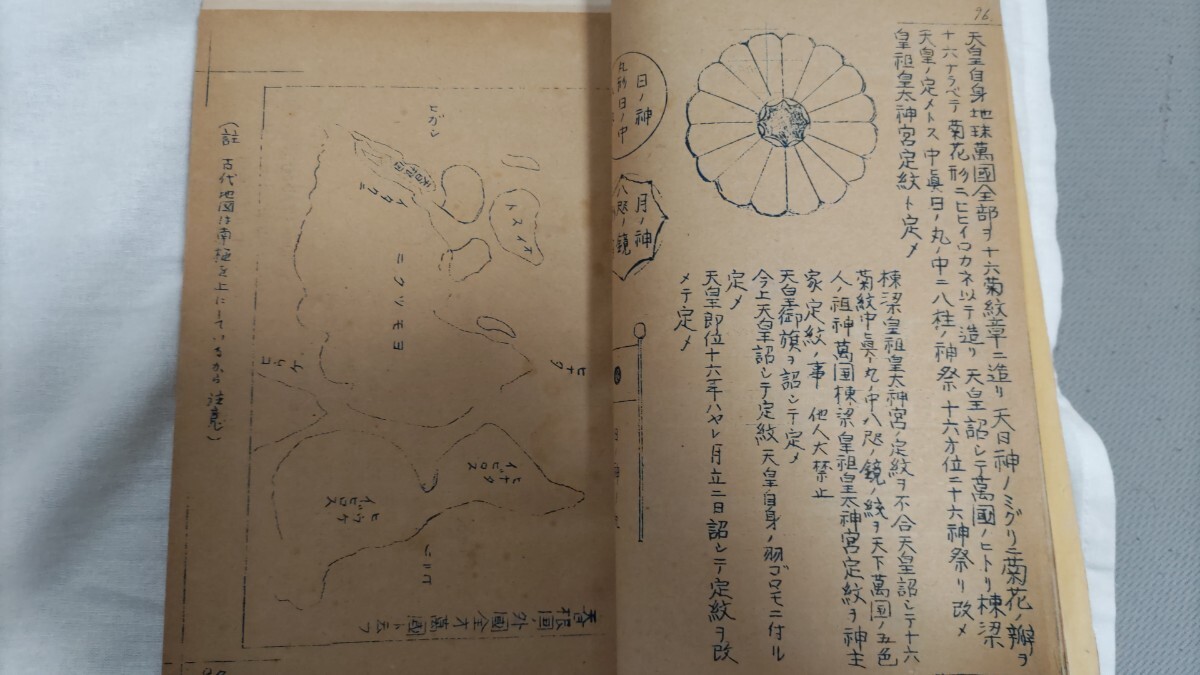 96.
天皇自身地球萬國全部ヲ十六菊紋章ニ造リ天日神ノミグリニ菊花ノ瓣ヲ
十六ナラベテ菊花形ニヒヒイロカネ以テ造リ天皇詔シテ萬國ノヒトリ棟梁
天皇ノ定メトス中眞日ノ丸ノ中ニ八柱ノ神祭十六方位ニ十六神祭リ改メ
皇祖皇太神宮定紋ト定メ
棟梁皇祖皇太神宮ノ定紋ヲ不合天皇詔シテ十六
菊紋中眞ノ丸ノ中八咫ノ鏡ノ紋ヲ天下萬国ノ五色
人ノ祖神萬国棟梁皇祖皇太神宮定紋ヲ神主
家定紋ノ事 他人大禁止
天皇御旗ヲ詔シテ定メ
今上天皇詔シテ定紋天皇自身ノ羽ゴマモニ付ル
定メ
天皇即位十六年ハヤレ月立二日詔シテ定紋ヲ改
メテ定メ
日ノ神
丸形日ノ中
月ノ神
八咫ノ鏡
ヒガシ
ニクツモヨ
ヒナタ
ヒナタ
イビロス
ヒウケ
イビロス
香根国外國全才萬國ト云フ
(註 古代地図は南極を上にしているから注意)